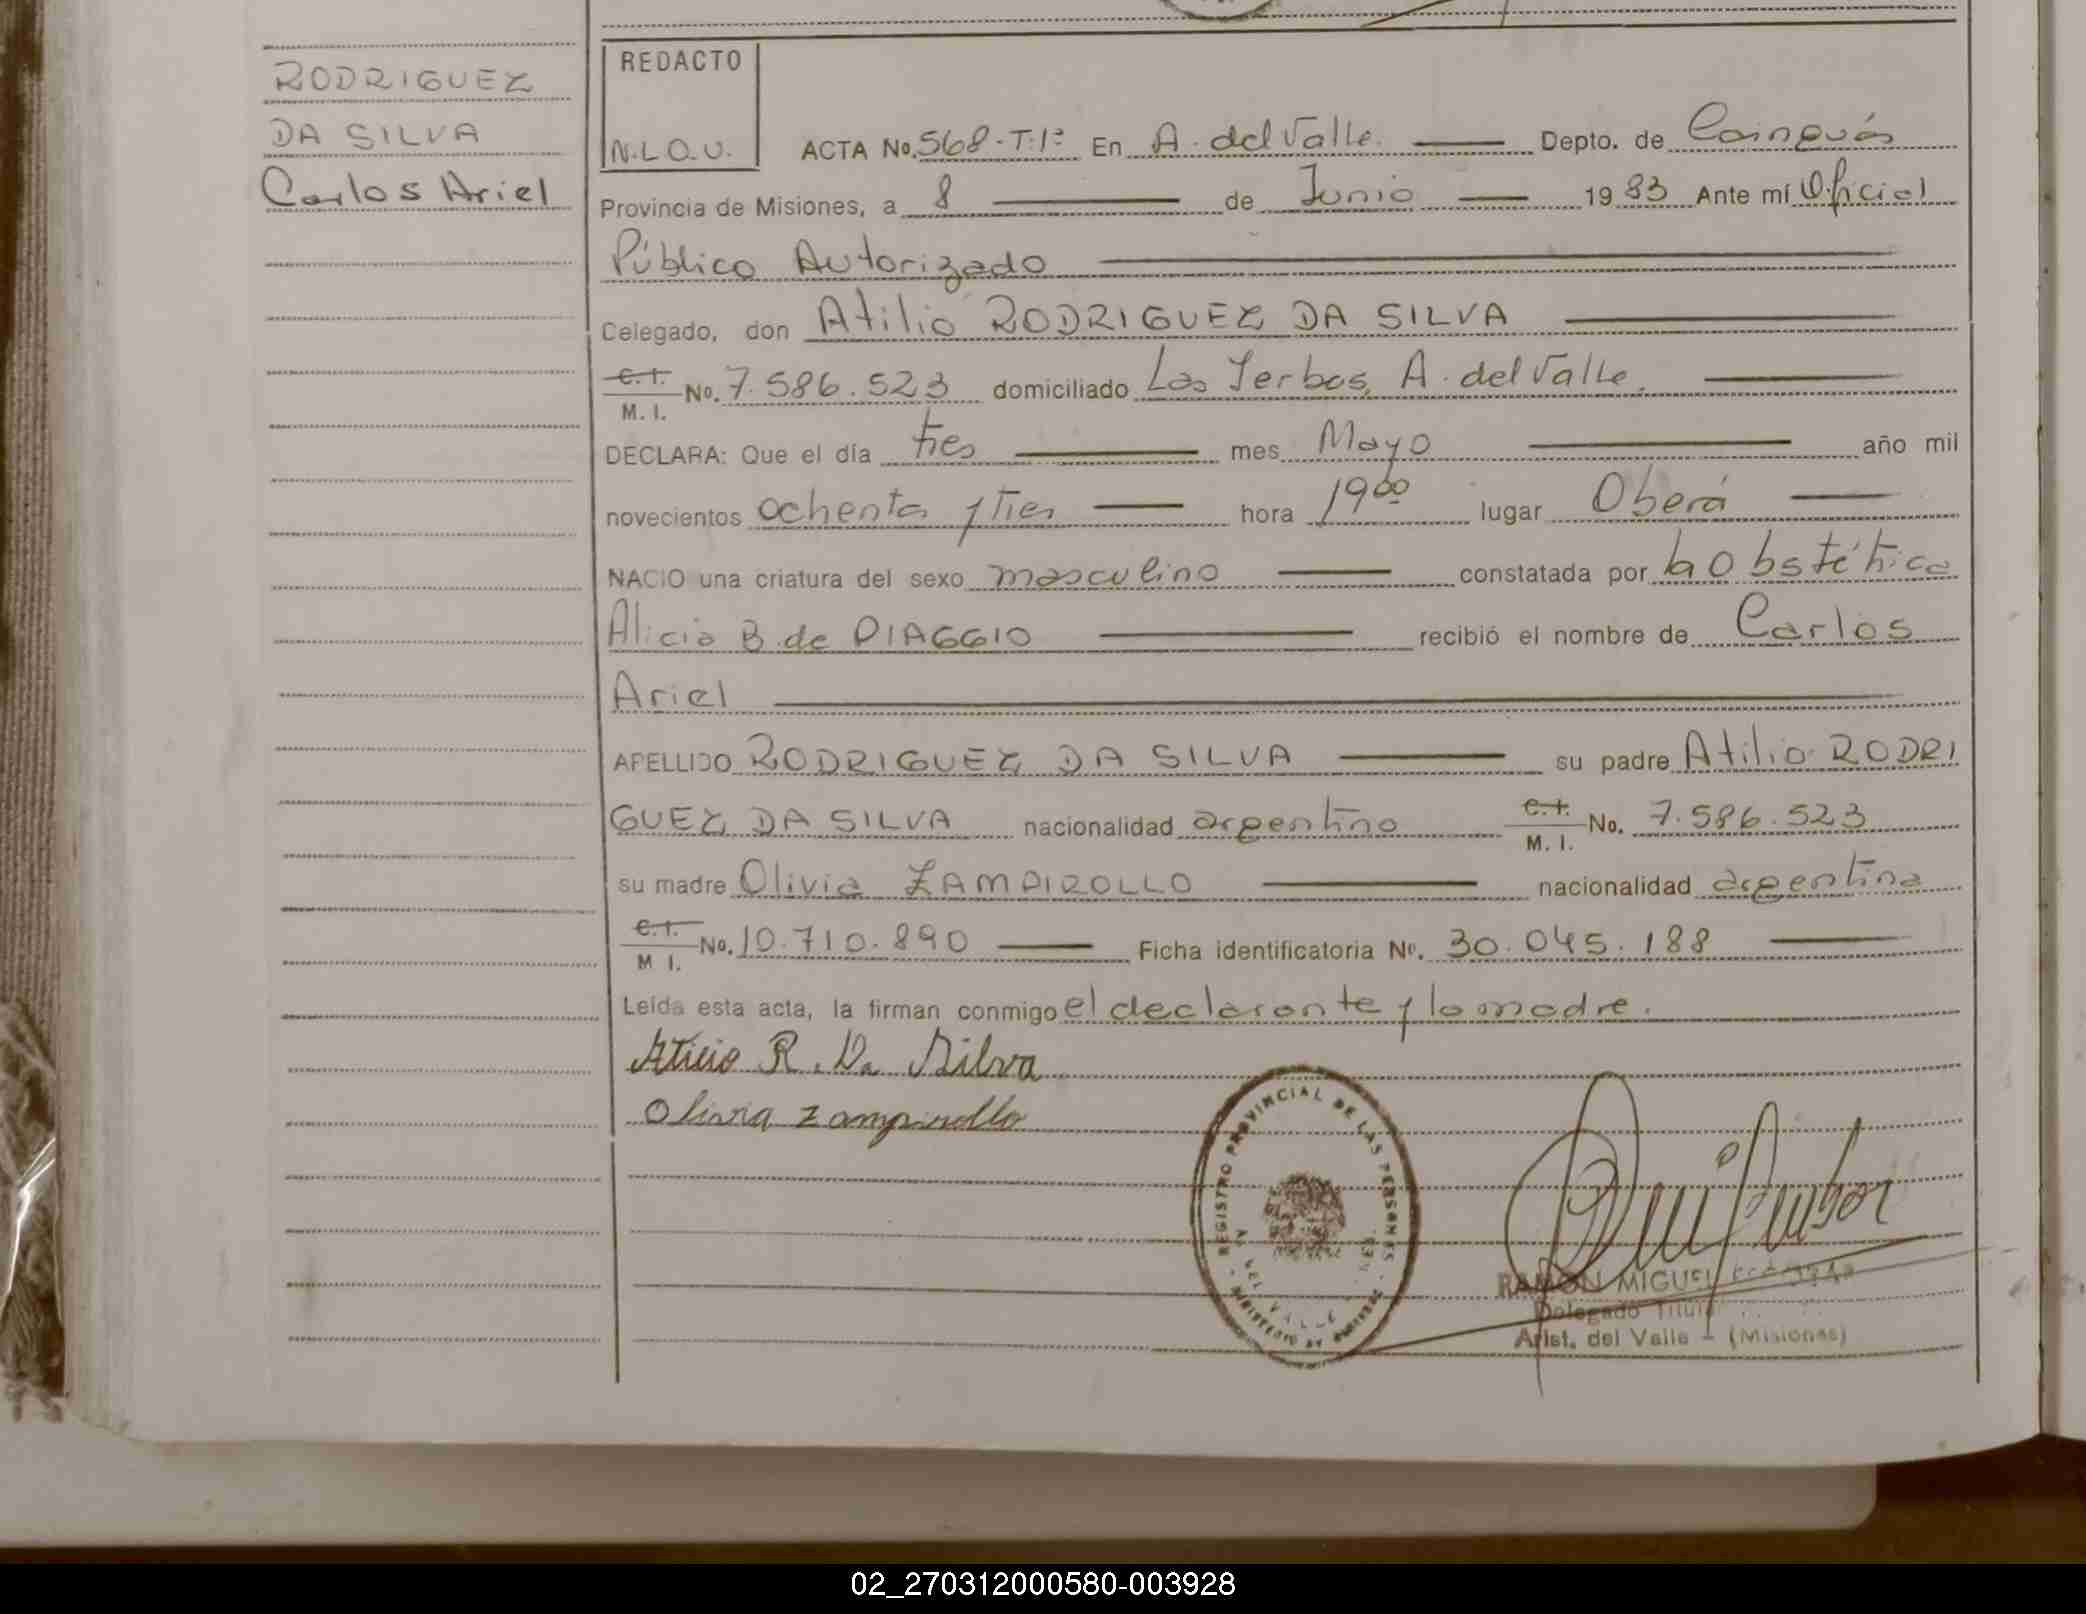 RODRIGUEZ
DA SILVA
Carlos Ariel
REDACTO
N.L.O.U.
ACTA No. 568-T:1º En A. del Valle. Depto. de Cainguás
Provincia de Misiones, a 8 de Junio 1983 Ante mí Oficial
Público Autorizado
Celegado, don Atilio RODRIGUEZ DA SILVA
C.I. M. I. No. 7.586.523 domiciliado Las Yerbas, A. del Valle.
DECLARA: Que el día tres mes Mayo año mil
novecientos ochenta y tres hora 19 00 lugar Oberá
NACIO una criatura del sexo masculino constatada por la Obstétrica
Alicia B. de PIAGGIO recibió el nombre de Carlos
Ariel
APELLIDO RODRIGUEZ DA SILVA su padre Atilio RODRI
GUEZ DA SILVA nacionalidad argentino C.I. M. I. No. 7.586.523
su madre Olivia ZAMPIROLLO nacionalidad argentina
C.I. M I. No. 10.710.890 Ficha identificatoria Nº. 30.045.188
Leída esta acta, la firman conmigo el declarante y la madre.
Atilio R. Da Silva
Olivia Zampirollo
REGISTRO PROVINCIAL DE LAS PERSONAS
DEL VALLE
RAMON MIGUEL
Delegado Titular
Arist. del Valle - (Misiones)
02_270312000580-003928